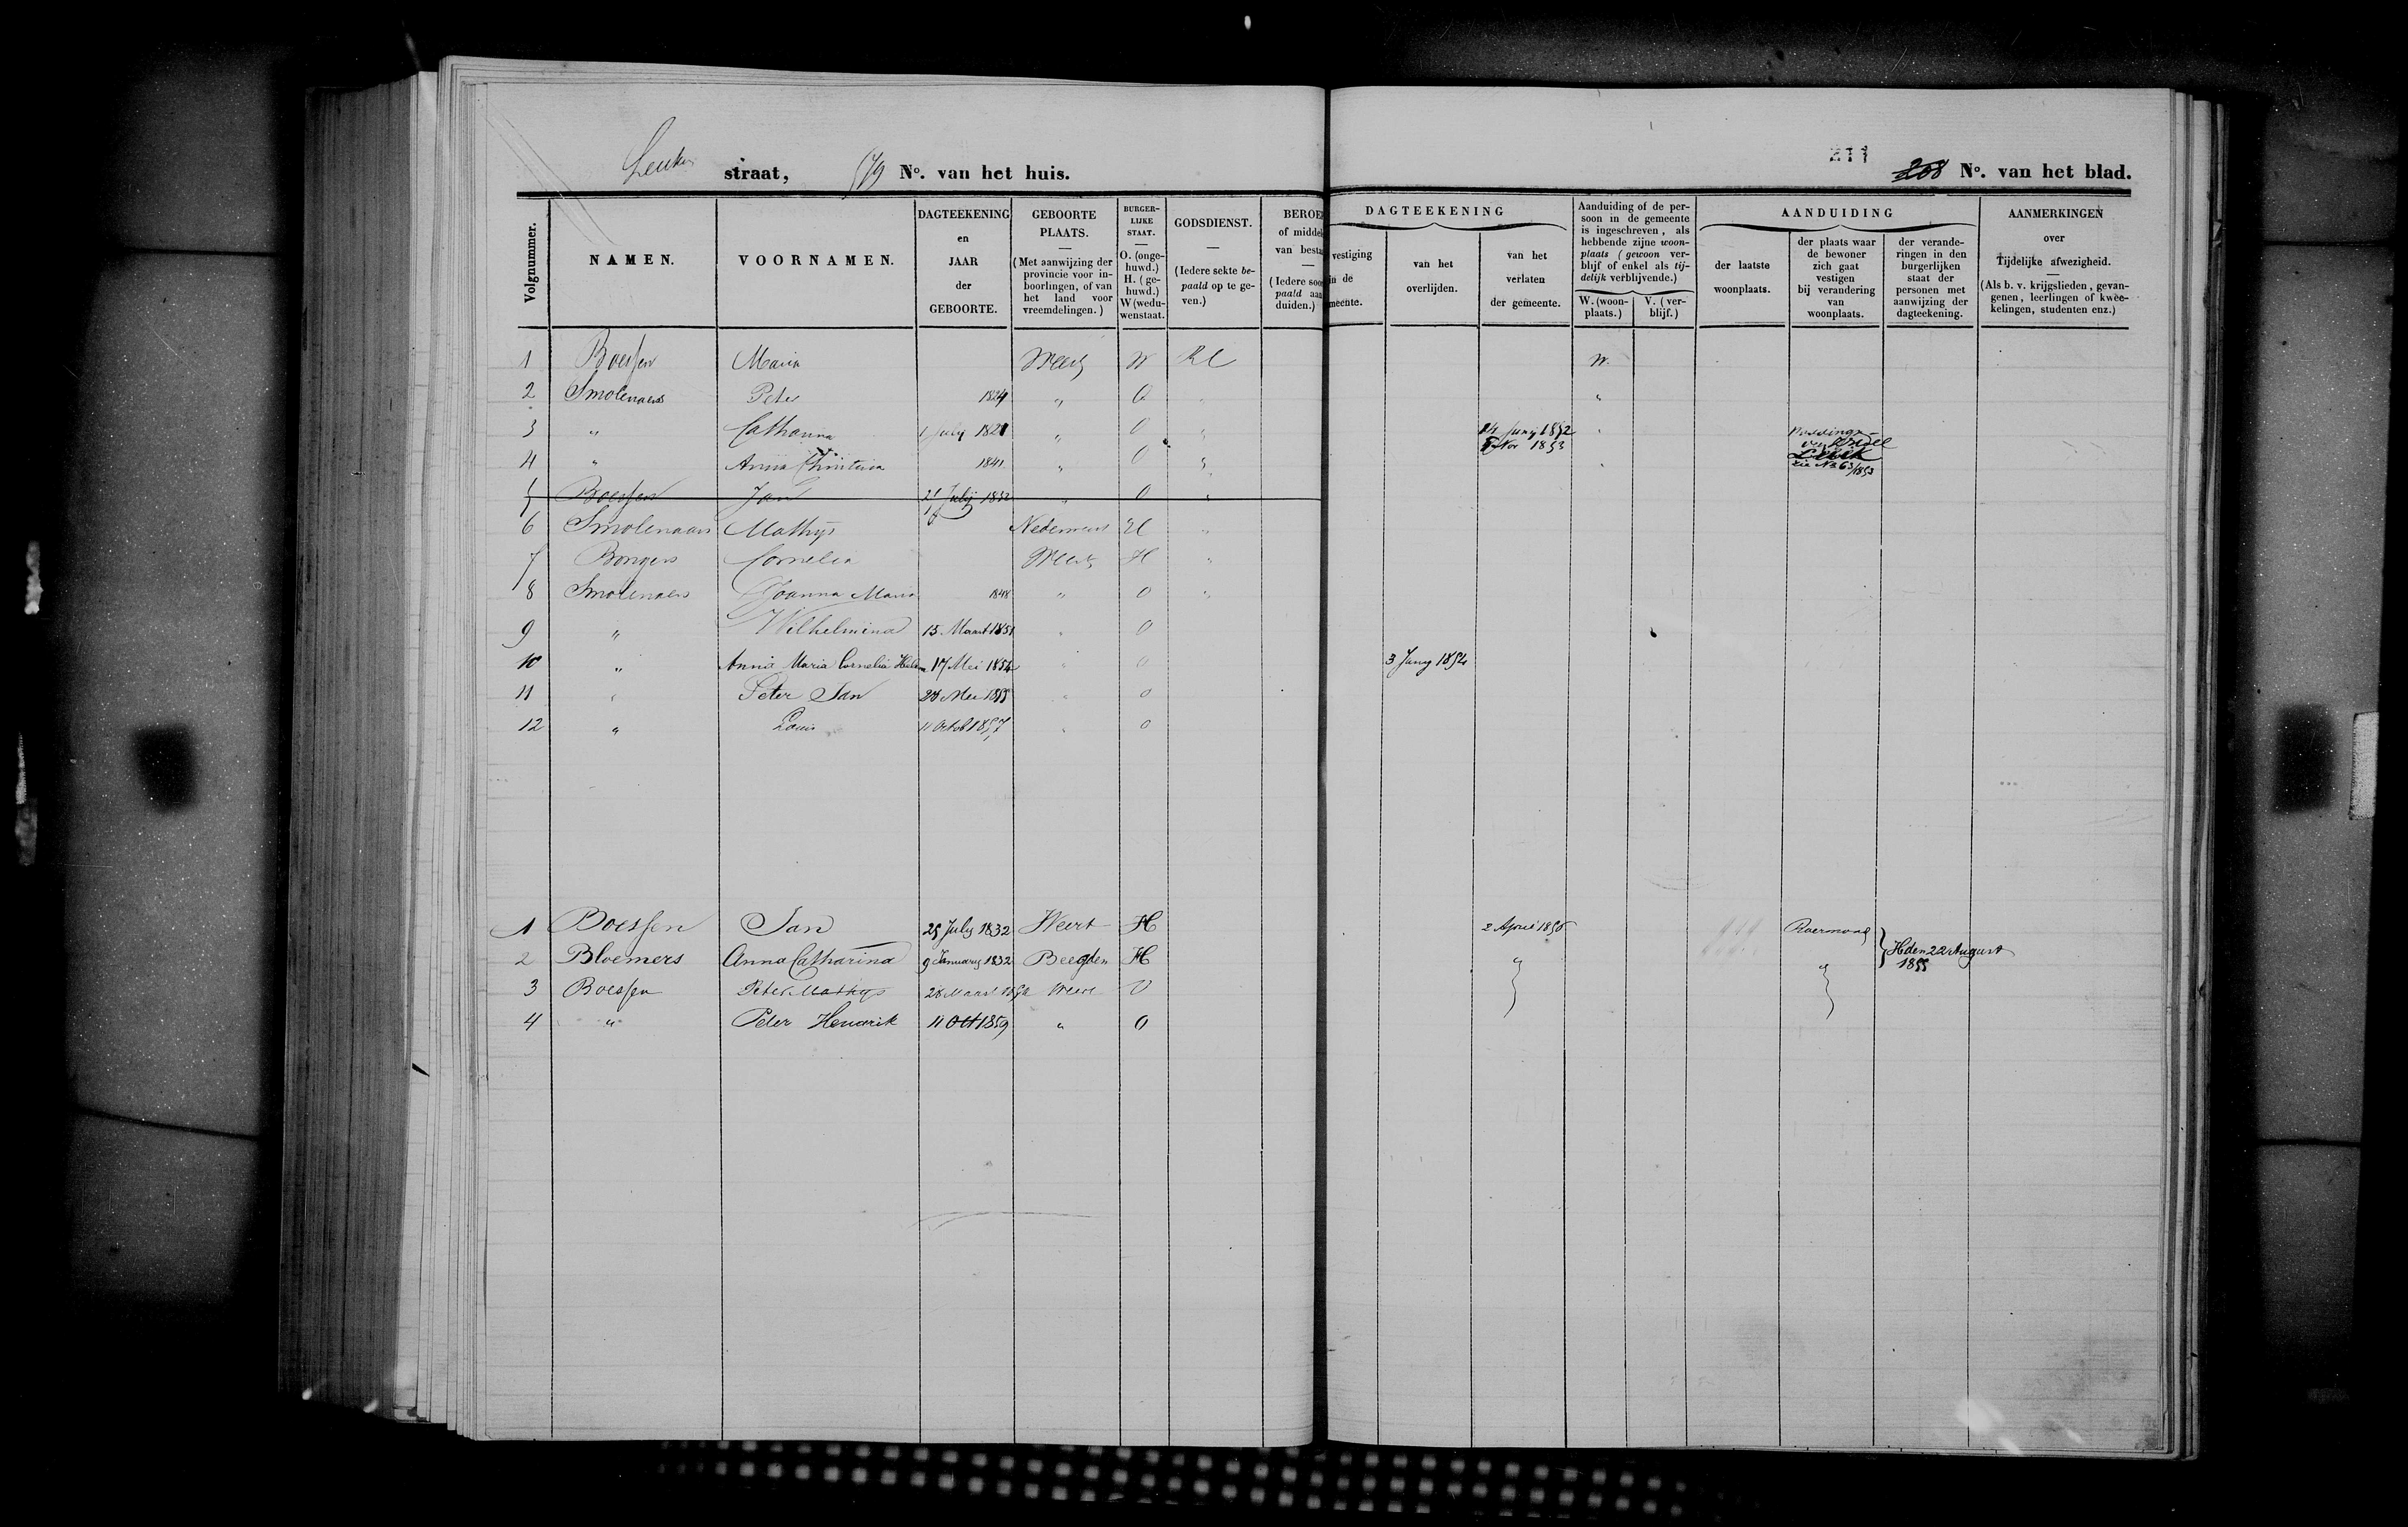 Leuker straat, 179 No. van het huis.
211
208 No. van het blad.
Volgnummer.
NAMEN.
VOORNAMEN.
DAGTEEKENING
en
JAAR
der
GEBOORTE.
GEBOORTE
PLAATS.
(Met aanwijzing der
provincie voor in-
boorlingen, of van
het land voor
vreemdelingen.)
BURGER-
LIJKE
STAAT.
O. (onge-
huwd.)
H. (ge-
huwd.)
W (wedu-
wenstaat.
GODSDIENST.
(Iedere sekte be-
paald op te ge-
ven.)
BEROE
of middel
van besta
(Iedere soo
paald aan
duiden.)
DAGTEEKENING
vestiging
in de
meente.
van het
overlijden.
van het
verlaten
der gemeente.
Aanduiding of de per-
soon in de gemeente
is ingeschreven, als
hebbende zijne woon-
plaats (gewoon ver-
blijf of enkel als tij-
delijk verblijvende.)
W. (woon-
plaats.)
V. (ver-
blijf.)
AANDUIDING
der laatste
woonplaats.
der plaats waar
de bewoner
zich gaat
vestigen
bij verandering
van
woonplaats.
der verande-
ringen in den
burgerlijken
staat der
personen met
aanwijzing der
dagteekening.
AANMERKINGEN
over
Tijdelijke afwezigheid.
(Als b. v. krijgslieden, gevan-
genen, leerlingen of kwee-
kelingen, studenten enz.)
1 Boessen Maria Weert W RC W.
2 Smolenaers Peter 1824 " O " "
3 " Catharina 1 July 1821 " O " 14 Juny 1852 "
7 Nov 1853
4 " Anna Christina 1841 " O " " Luik
zie No 63/1853
5 Boessen Jan 21 July 1832 " O "
6 Smolenaars Mathijs Nederweert H "
7 Bongers Cornelia Weert H "
8 Smolenaers Joanna Maria 1848 " O "
9 " Wilhelmina 15 Maart 1851 " O
10 " Anna Maria Cornelia Helena 17 Mei 1854 " O 3 Juny 1854
11 " Peter Jan 28 Mei 1855 " O
12 " Louis 11 Octob 1857 " O
1 Boessen Jan 25 July 1832 Weert H 2 April 1858 Roermond
2 Bloemers Anna Catharina 9 January 1832 Beegden H " " H den 22 August
1855
3 Boessen Peter Mathys 28 Maart Weert O
4 " Peter Hendrik 11 Oct 1859 " O